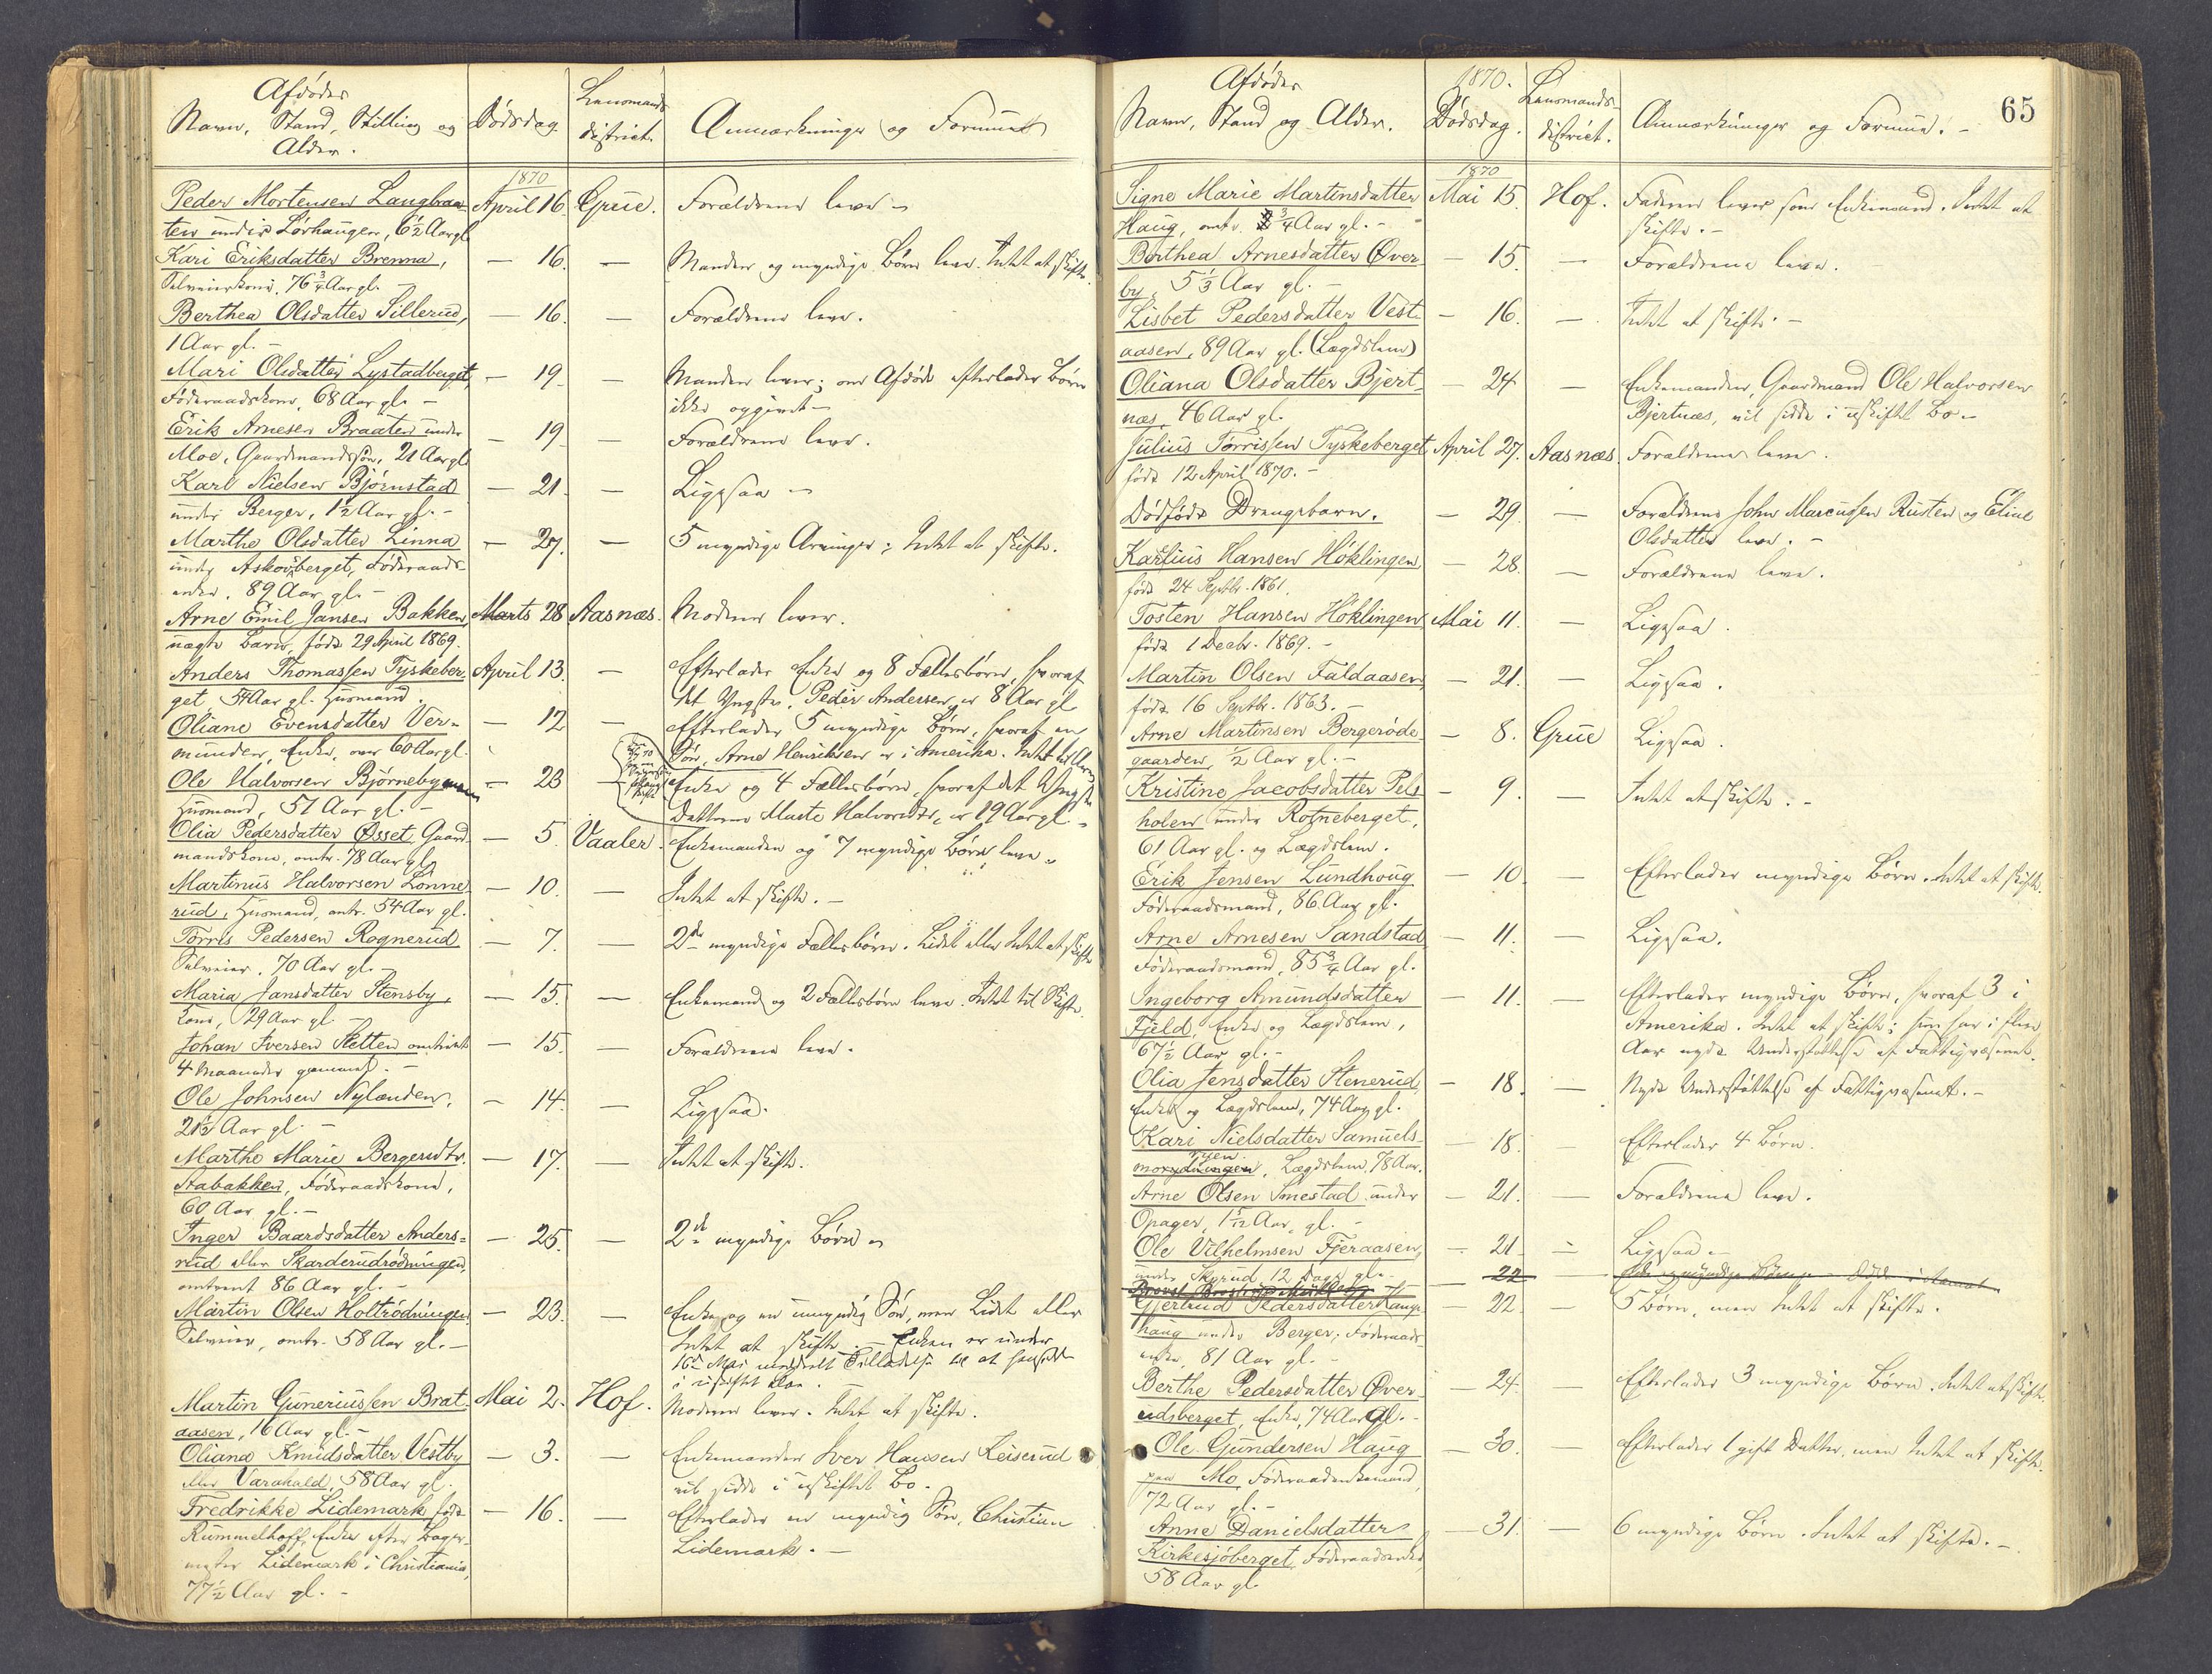 Afdødes
Navn, Stand, Stilling og
Alder.
Dødsdag.
Lensmands
district.
Anmærkninger og Formue
1870
Peder Mortensen Langbraa-
ten under Lørhaugen, 6½ Aar gl
April 16. Grue. Forældrene leve
Kari Eriksdatter Brenna,
Selveierkone, 76¾ Aar gl.
— 16. — Manden og myndige Børn leve. Intet at skifte.
Berthea Olsdatter Sillerud,
1 Aar gl. —
— 16. — Forældrene leve.
Mari Olsdatter Lystadberget,
Føderaadskone, 68 Aar gl. —
— 19. — Manden lever; om Afdøde efterlader Børn
ikke opgivet —
Erik Arnesen Braaten under
Moe, Gaardmandssøn, 21 Aar gl
— 19 — Forældrene leve.
Karl Nielsen Bjørnstad
under Berger, 1½ Aar gl. —
— 21. — Ligesaa —
Marthe Olsdatter Linna
under Askovberget, Føderaads-
enke, 89 Aar gl. —
— 27. — 5 myndige Arvinger; Intet at skifte.
Arne Emil Jansen Bakken,
uægte Barn, født 29 April 1869.
Marts 28 Aasnæs. Moderen lever.
Anders Thomassen Tyskeber-
get, 54 Aar gl. Husmand.
April 13. — Efterlader Enke og 8 Fællesbørn, hvoraf
det Yngste, Peder Andersen, er 8 Aar gl
Oliane Evensdatter Ver-
munden, Enke, over 60 Aar gl.
— 12 — Efterlader 5 myndige Børn, hvoraf en
Søn, Arne Henriksen er i Amerika. Intet til Arv
Ole Halvorsen Bjørneby
Husmand, 51 Aar gl. —
— 23 — Enke og 4 Fællesbørn, hvoraf det Yngste
Datteren Marte Halvorsdtr, er 19 Aar gl. —
Olia Pedersdatter Øsset, Gaard-
mandskone, omtr. 78 Aar gl.
— 5. Vaaler. Enkemanden og 7 myndige Børn leve.
Martinus Halvorsen Lønne-
rud, Husmand, omtr. 54 Aar gl.
— 10. — Intet at skifte. —
Torris Pedersen Rognerud
Selveier, 70 Aar gl. —
— 7. — 2de myndige Fællesbørn. Lidet eller Intet at skifte
Maria Jansdatter Stensby,
Kone, 29 Aar gl. —
— 15. — Enkemand og 2 Fællesbørn leve. Intet til Skifte.
Johan Iversen Sletten omtrent
4 Maaneder gammel. —
— 15. — Forældrene leve.
Ole Johnsen Nylænden,
21½ Aar gl. —
— 14. — Ligesaa.
Marthe Marie Bergersdtr.
Stabakken, Føderaadskone,
60 Aar gl. —
— 17. — Intet at skifte.
Inger Baardsdatter Anders-
rud eller Skarderudrødningen,
omtrent 86 Aar gl. —
— 25. — 2de myndige Børn
Martin Olsen Holtrødningen
Selveier, omtr. 58 Aar gl. —
— 23. — Enke og en umyndig Søn, men Lidet eller
Intet at skifte. — Enken er under
16de Mai meddelt Tilladelse til at hensidde
i uskiftet Bo.
Martin Guneriussen Brat-
aasen, 16 Aar gl. —
Mai 2. Hof. Moderen lever. Intet at skifte.
Oliana Knudsdatter Vestby
eller Varahald, 58 Aar gl.
— 3. — Enkemanden Iver Hansen Keiserud
vil sidde i uskiftet Bo.
Fredrikke Lidemark født
Rummelhoff, Enke efter Bager-
mester Lidemark i Christiania,
77½ Aar gl. —
— 16. — Efterlader en myndig Søn, Christian
Lidemark. —
65
Afdødes
Navn, Stand og Alder.
1870.
Dødsdag.
Lensmands-
district.
Anmærkninger og Formue. —
1870
Signe Marie Martinsdatter
Haug, omtr. ¾ Aar gl. —
Mai 15. Hof. Faderen lever som Enkemand. Intet at
skifte. —
Berthea Arnesdatter Øver-
by, 5⅓ Aar gl. —
— 15. — Forældrene leve.
Lisbet Pedersdatter Vest-
aasen, 89 Aar gl. (Lægdslem)
— 16. — Intet at skifte. —
Oliana Olsdatter Bjert-
næs, 46 Aar gl.
— 24 — Enkemanden, Gaardmand Ole Halvorsen
Bjertnæs, vil sidde i uskiftet Bo —
Julius Torrissen Tyskeberget
født 12 April 1870. —
April 27. Aasnæs. Forældrene leve.
Dødfødt Drengebarn.
— 29. — Forældrene John Marcussen Rusten og Eline
Olsdatter leve. —
Karlius Hansen Høklingen,
født 24 Septbr. 1861.
— 28. — Forældrene leve.
Tosten Hansen Høklingen
født 1 Decbr. 1869. —
Mai 11. — Ligesaa.
Martin Olsen Faldaasen,
født 16 Septbr. 1863. —
— 21. — Ligesaa.
Arne Martinsen Bergerøde-
gaarden, ½ Aar gl. —
— 8. Grue Ligesaa.
Kristine Jacobsdatter Pels-
holen under Rotneberget,
61 Aar gl. og Lægdslem.
— 9. — Intet at skifte. —
Erik Jensen Lundhoug
Føderaadsmand, 86 Aar gl.
— 10. — Efterlader myndige Børn. Intet at skifte.
Arne Arnesen Sandstad
Føderaadsmand, 85¾ Aar gl.
— 11. — Ligesaa.
Ingeborg Amundsdatter
Fjeld, Enke og Lægdslem,
67½ Aar gl. —
— 11. — Efterlader myndige Børn, hvoraf 3 i
Amerika. Intet at skifte; hun har i flere
Aar nydt Understøttelse af Fattigvæsenet.
Olia Jensdatter Stenerud,
Enke og Lægdslem, 74 Aar gl.
— 18. — Nydt Understøttelse af Fattigvæsenet. —
Kari Nielsdatter Samuels-
moryen, Lægdslem, 78 Aar.
— 18. — Efterlader 4 Børn.
Arne Olsen Smestad under
Opager, 1 5/12 Aar gl. —
— 21. — Forældrene leve.
Ole Vilhelmsen Fjeraasen,
under Skyrud, 12 Dage gl. —
— 21 — Ligesaa —
— 22 —
Gjertrud Pedersdatter Kamp-
haug under Berger, Føderaads-
enke, 81 Aar gl. —
— 22. — 5 Børn, men Intet at skifte.
Berthe Pedersdatter Øver-
udsberget, Enke, 74 Aar gl. —
— 24. — Efterlader 3 myndige Børn. Intet at skifte.
Ole Gundersen Haug
paa Mo, Føderaadsenkemand,
72 Aar gl. —
— 30. — Efterlader 1 gift Datter, men Intet at skifte.
Anne Danielsdatter
Kirkesjøberget, Føderaadsenke,
58 Aar gl.
— 31. — 6 myndige Børn. Intet at skifte. —